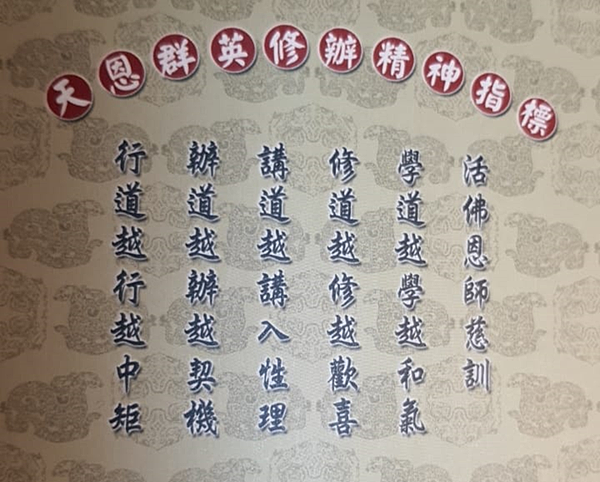 天恩群英修辦精神指標
活佛恩師慈訓
學道越學越和氣
修道越修越歡喜
講道越講入性理
辦道越辦越契機
行道越行越中矩